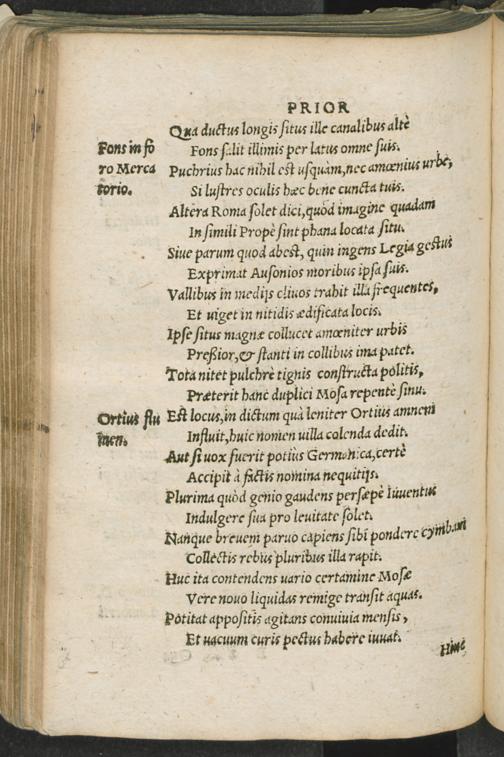 PRIOR
Qua ductus longis situs ille canalibus altè
Fons in fo
Fons salit illimis per latus omne suis.
ro Merca
Puchrius hac nihil est usquàm, nec amœnius urbe,
torio.
Si lustres oculis hæc bene cuncta tuis.
Altera Roma solet dici, quòd imagine quadam
In simili Propè sint phana locata situ.
Siue parum quod abest, quin ingens Legia gestus
Exprimat Ausonios moribus ipsa suis.
Vallibus in medijs cliuos trahit illa frequentes,
Et uiget in nitidis ædificata locis.
Ipse situs magnæ collucet amœniter urbis
Preßior, & stanti in collibus ima patet.
Tota nitet pulchrè tignis constructa politis,
Præterit hanc duplici Mosa repentè sinu.
Ortius flu
Est locus, in dictum quà leniter Ortius amnem
men.
Influit, huic nomen uilla colenda dedit.
Aut si uox fuerit potius Germanica, certè
Accipit à factis nomina nequitijs.
Plurima quòd genio gaudens persæpè iuuentus
Indulgere sua pro leuitate solet.
Nanque breuem paruo capiens sibi pondere cymbam
Collectis rebus pluribus illa rapit.
Huc ita contendens uario certamine Mosæ
Vere nouo liquidas remige transit aquas.
Potitat appositis agitans conuiuia mensis,
Et uacuum curis pectus habere iuuat.
Hinc